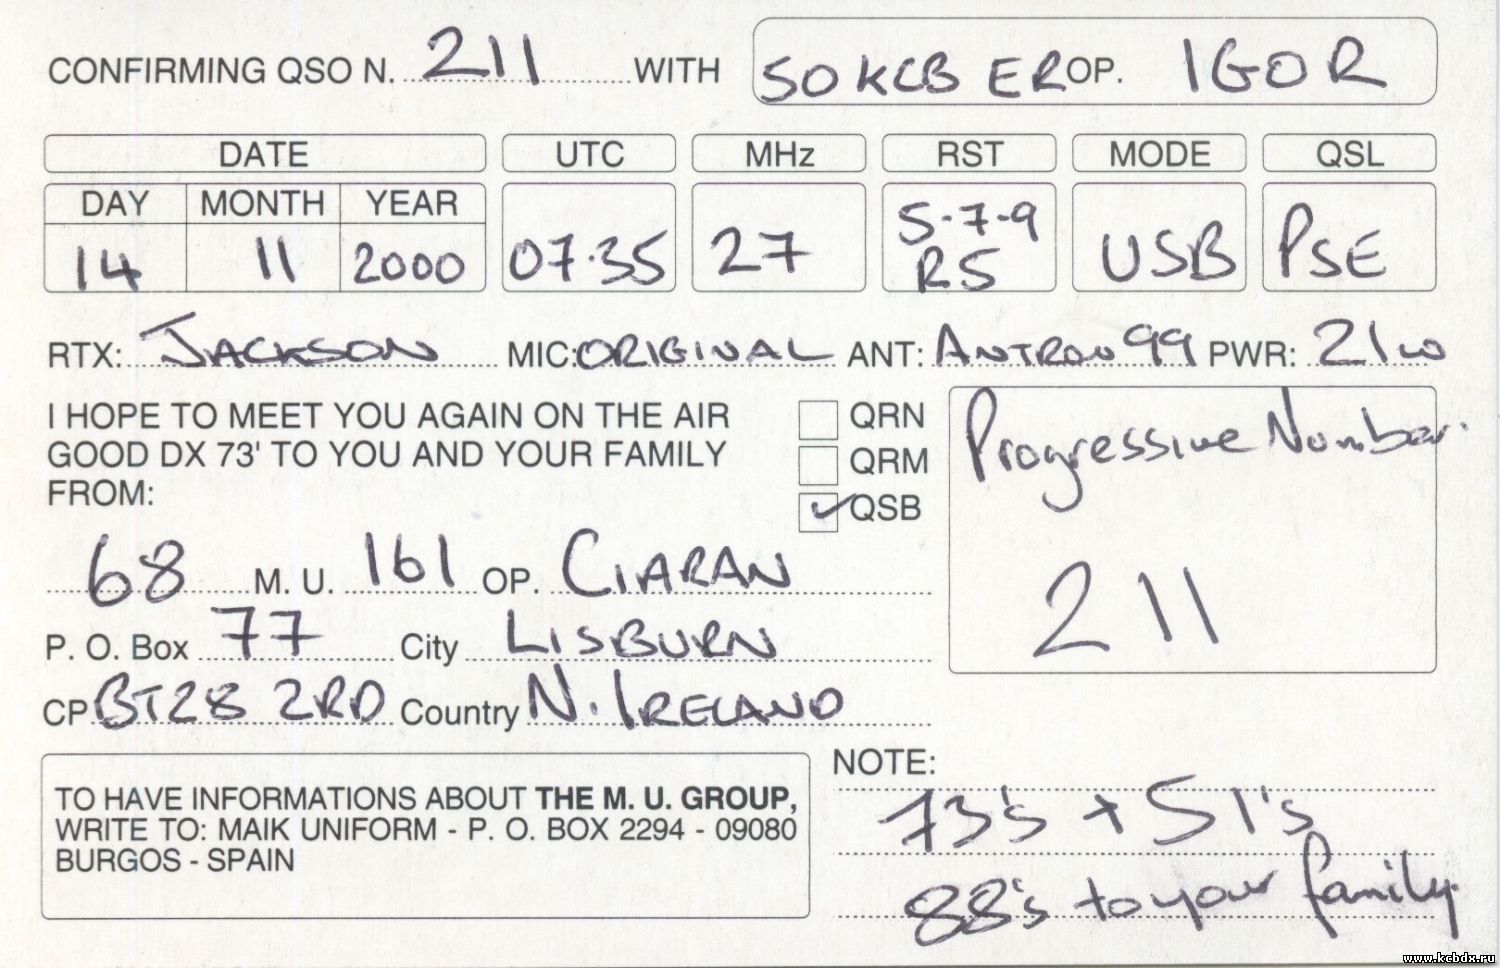 CONFIRMING QSO N. 211 WITH 50 KCB ER OP. IGOR
DATE UTC MHz RST MODE QSL
DAY MONTH YEAR
14 11 2000 07.35 27 5-7-9 R5 USB PSE
RTX: JACKSON MIC: ORIGINAL ANT: ANTRON 99 PWR: 21w
I HOPE TO MEET YOU AGAIN ON THE AIR
GOOD DX 73' TO YOU AND YOUR FAMILY
FROM:
QRN
QRM
QSB
Progressive Number.
211
68 M. U. 161 OP. CIARAN
P. O. Box 77 City LISBURN
CP BT28 2RD Country N. IRELAND
TO HAVE INFORMATIONS ABOUT THE M. U. GROUP,
WRITE TO: MAIK UNIFORM - P. O. BOX 2294 - 09080
BURGOS - SPAIN
NOTE:
73's + 51's
88's to your family.
www.kcbdx.ru